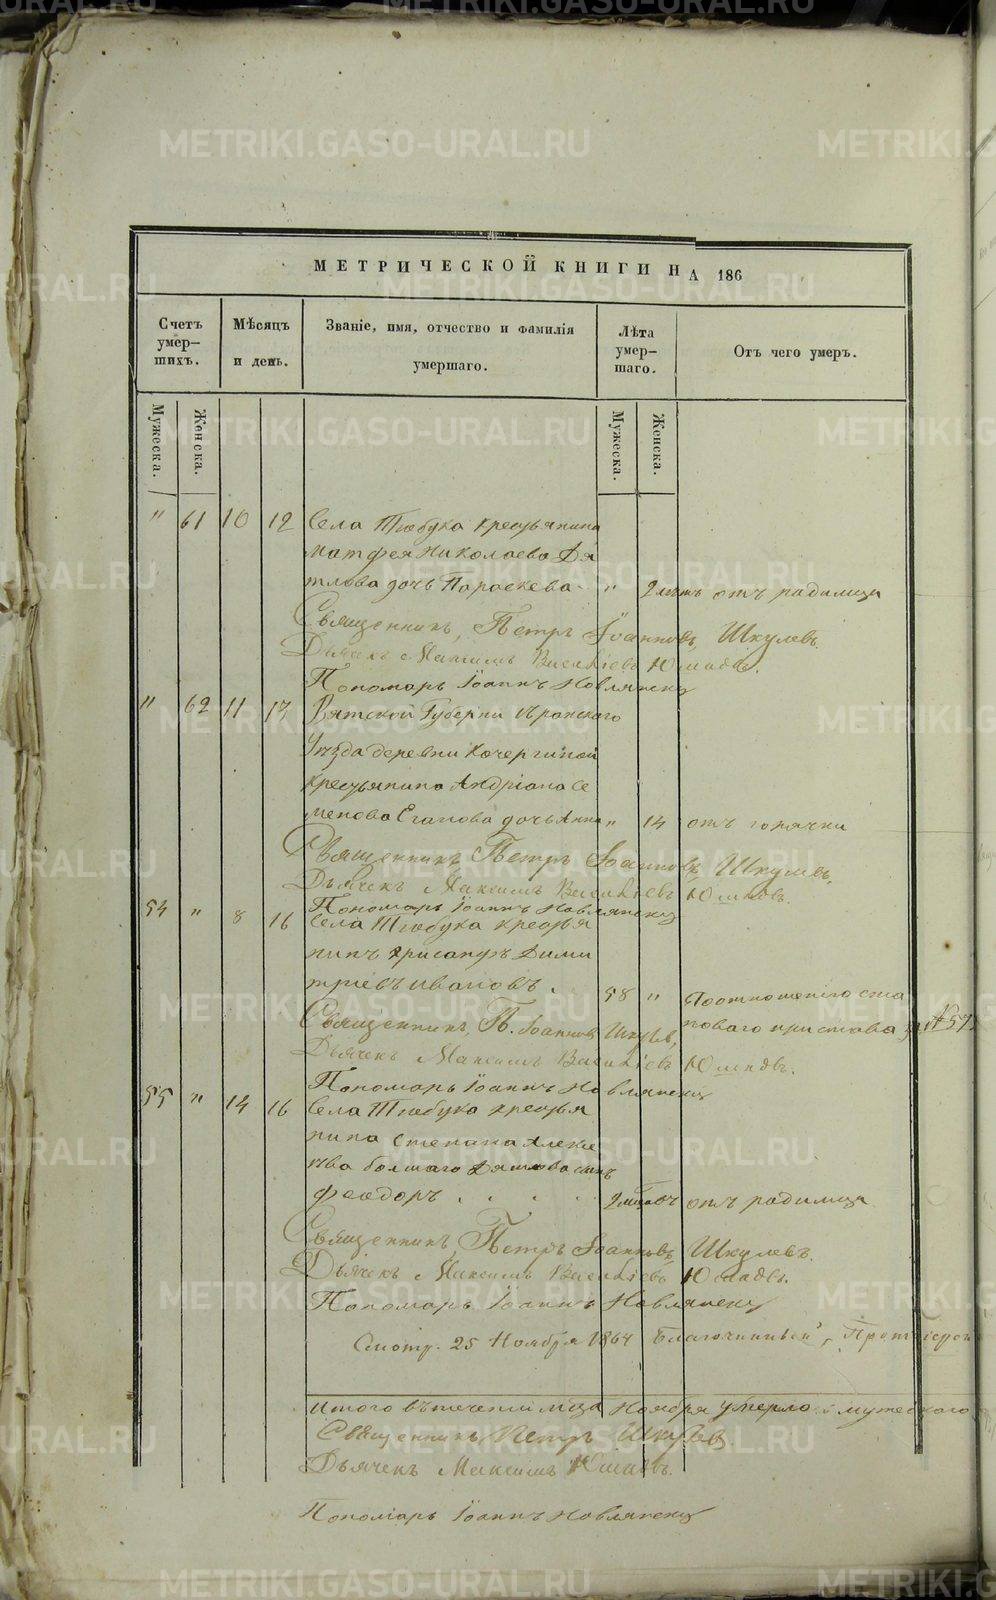 МЕТРИЧЕСКОЙ КНИГИ НА 186
Счетъ умер-шихъ.
Мѣсяцъ и день.
Званіе, имя, отчество и фамилія умершаго.
Лѣта умер-шаго.
Отъ чего умеръ.
Мужеска.
Женска.
Мужеска.
Женска.
" 61 10 12 Села Тюбука крестьянина
Матфея Николаева Дя
тлова дочь Параскева " 2 лѣтъ отъ родимца
Священникъ, Петръ Іоанновъ Шкулевъ.
Дьячекъ Максимъ Василіевъ Юшковъ.
Пономарь Іоаннъ
" 62 11 13 Вятской Губерни
Уѣзда деревни Кочергиной
крестьянина Андріана Се
менова дочь Анна " 14 отъ горячки
Священникъ Петръ Іоанновъ Шкулевъ.
Дьячекъ Максимъ Василіевъ Юшковъ.
Пономарь Іоаннъ
54 " 8 16 Села Тюбука крестья
нинъ Хрисанфъ Дими
тріевъ Ивановъ. 58 " По отношенію ста
новаго пристава за №
Священникъ, П. Іоанновъ Шкулевъ,
Дьячекъ Максимъ Василіевъ Юшковъ.
Пономарь Іоаннъ
55 " 14 16 Села Тюбука крестья
нина Степана Алекс
ѣева болшаго сынъ
Феодоръ . . . . 2 отъ родимца
Священникъ, Петръ Іоанновъ Шкулевъ.
Дьячекъ Максимъ Василіевъ Юшковъ.
Пономарь Іоаннъ
Смотр. 25 Ноября 1864 Благочинный, Протоіерей
Итого въ теченіи мца Ноября умерло мужескаго
Священникъ Петръ Шкулевъ
Дьячекъ Максимъ Юшковъ.
Пономарь Іоаннъ
METRIKI.GASO-URAL.RU